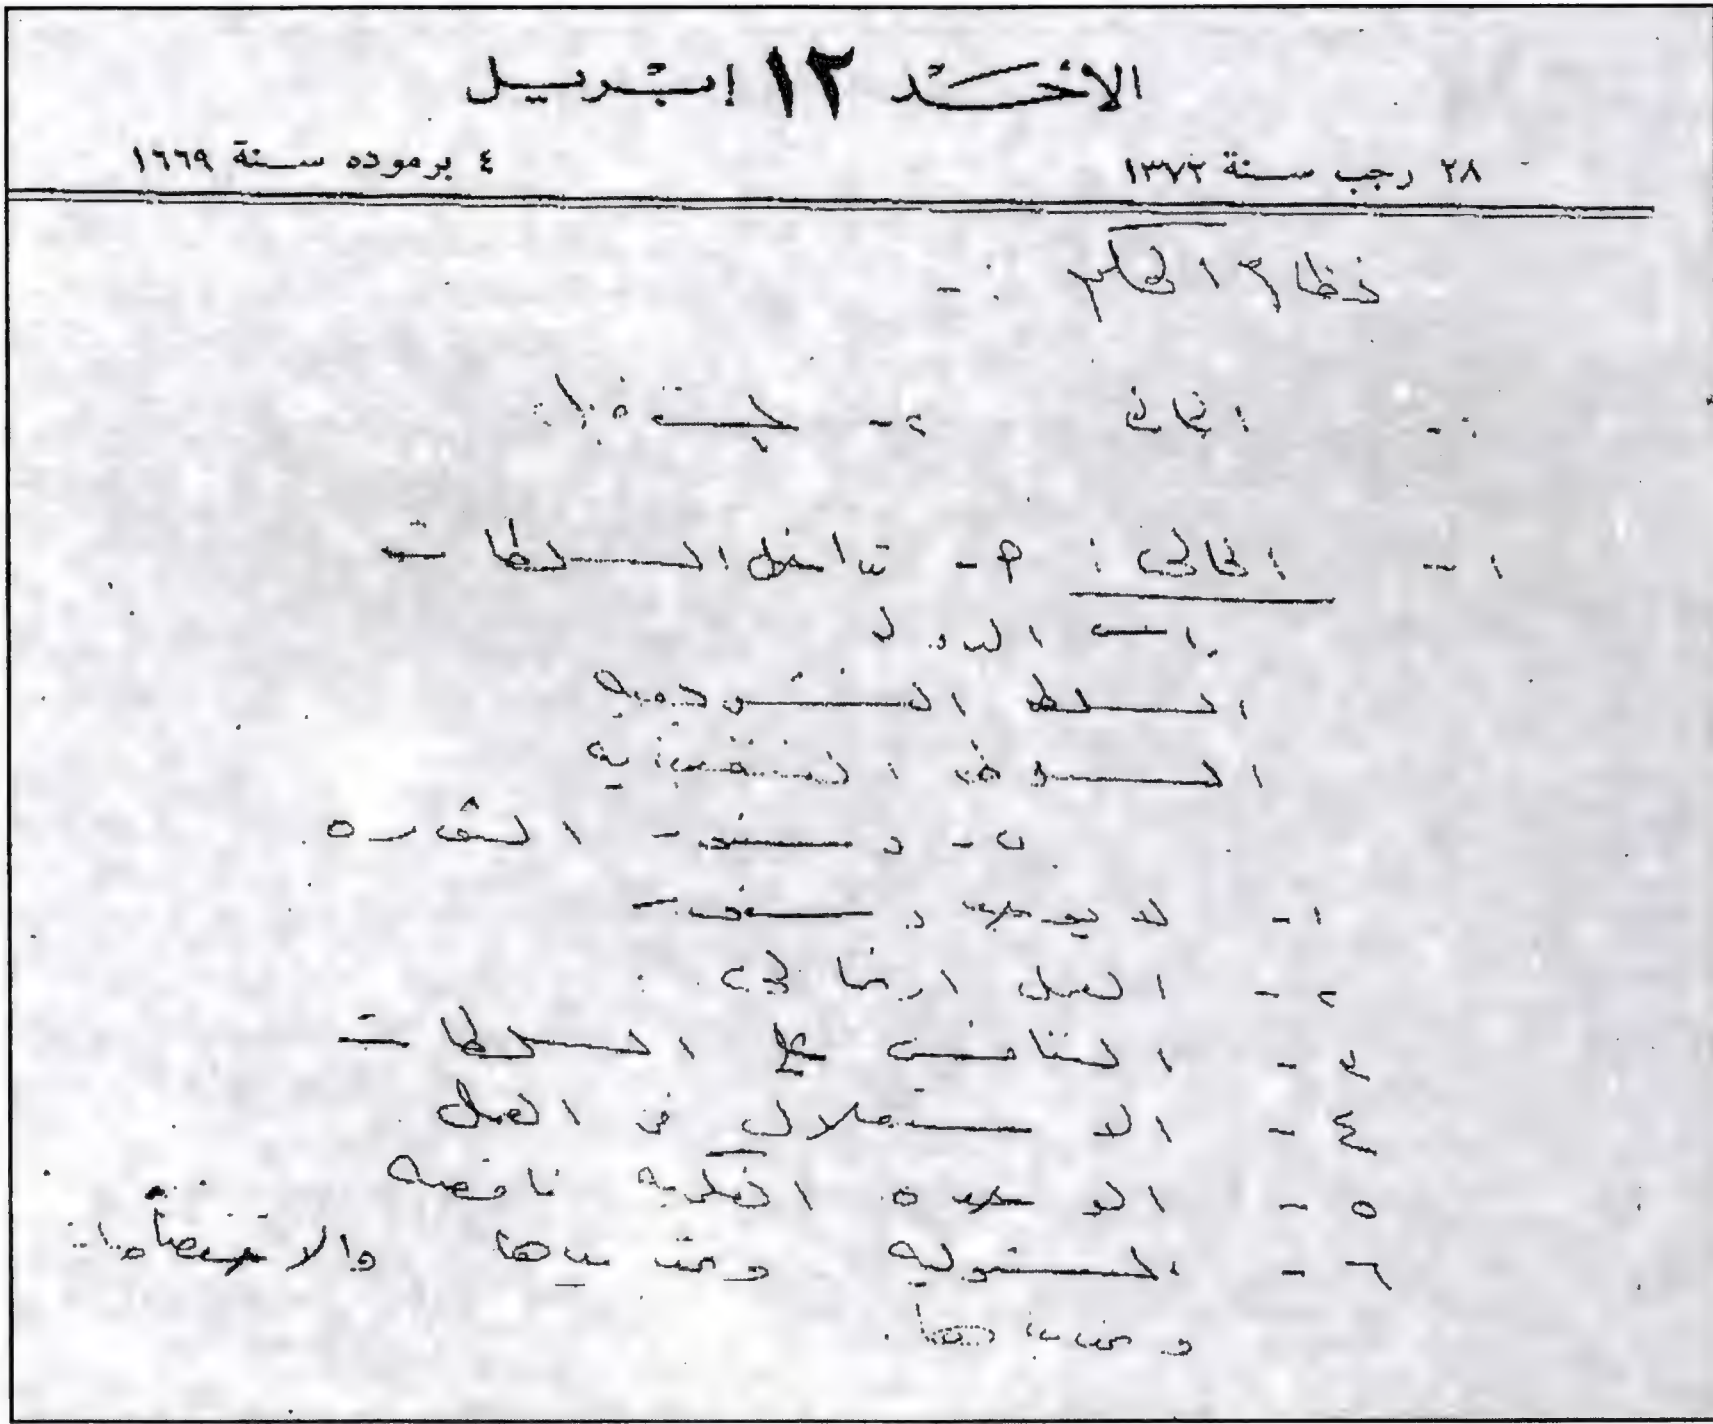 الأحد ١٢ إبريل
٢٨ رجب سنة ١٣٧٢ ٤ برموده سنة ١٦٦٩
نظام الحكم :-
١- الحالى ٢-
١- الحالى : ٢- تداخل السلطات
راس الدوله
السلطه التشريعيه
السلطه التنفيذيه
ب- دستور الثوره
١- لا يوجد دستور
٢- العمل ارتجالى .
٣- التنافس على السلطات
٤- الاستقلال فى العمل
٥- الوحده الفكريه ناقصه
٦- المسئوليه وحدودها والاختصاصات
وحدودها .